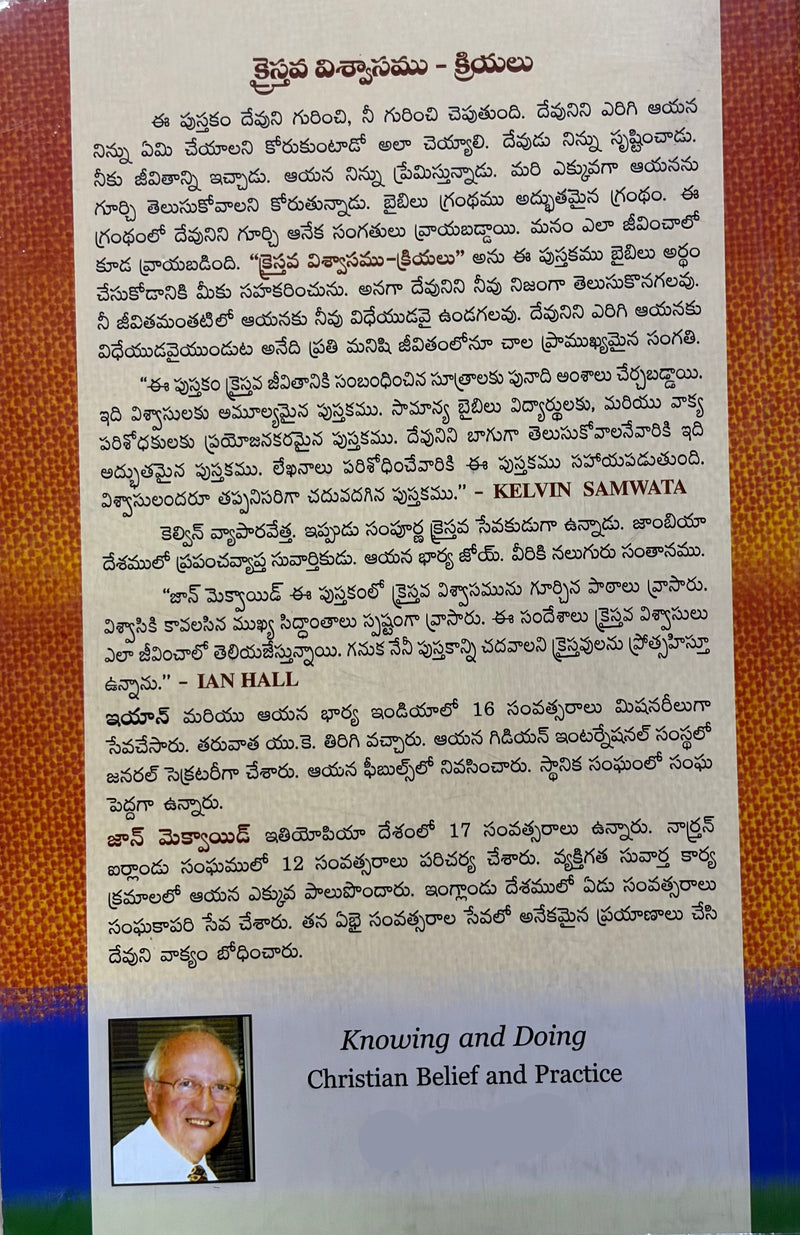 క్రైస్తవ విశ్వాసము - క్రియలు
ఈ పుస్తకం దేవుని గురించి, నీ గురించి చెపుతుంది. దేవునిని ఎరిగి ఆయన
నిన్ను ఏమి చేయాలని కోరుకుంటాడో అలా చెయ్యాలి. దేవుడు నిన్ను సృష్టించాడు.
నీకు జీవితాన్ని ఇచ్చాడు. ఆయన నిన్ను ప్రేమిస్తున్నాడు. మరి ఎక్కువగా ఆయనను
గూర్చి తెలుసుకోవాలని కోరుతున్నాడు. బైబిలు గ్రంథము అద్భుతమైన గ్రంథం. ఈ
గ్రంథంలో దేవునిని గూర్చి ఆనేక సంగతులు వ్రాయబడ్డాయి. మనం ఎలా జీవించాలో
కూడ వ్రాయబడింది. “క్రైస్తవ విశ్వాసము-క్రియలు” అను ఈ పుస్తకము బైబిలు అర్థం
చేసుకోడానికి మీకు సహకరించును. అనగా దేవునిని నీవు నిజంగా తెలుసుకొనగలవు.
నీ జీవితమంతటిలో ఆయనకు నీవు విధేయుడవై ఉండగలవు. దేవునిని ఎరిగి ఆయనకు
విధేయుడవైయుండుట అనేది ప్రతి మనిషి జీవితంలోనూ చాల ప్రాముఖ్యమైన సంగతి.
“ఈ పుస్తకం క్రైస్తవ జీవితానికి సంబంధించిన సూత్రాలకు పునాది అంశాలు చేర్చబడ్డాయి.
ఇది విశ్వాసులకు అమూల్యమైన పుస్తకము. సామాన్య బైబిలు విద్యార్థులకు, మరియు వాక్య
పరిశోధకులకు ప్రయోజనకరమైన పుస్తకము. దేవునిని బాగుగా తెలుసుకోవాలనేవారికి ఇది
అద్భుతమైన పుస్తకము. లేఖనాలు పరిశోధించేవారికి ఈ పుస్తకము సహాయపడుతుంది.
విశ్వాసులందరూ తప్పనిసరిగా చదువదగిన పుస్తకము.” - KELVIN SAMWATA
కెల్విన్ వ్యాపారవేత్త. ఇప్పుడు సంపూర్ణ క్రైస్తవ సేవకుడుగా ఉన్నాడు. జాంబియా
దేశములో ప్రపంచవ్యాప్త సువార్తికుడు. ఆయన భార్య జోయ్. వీరికి నలుగురు సంతానము.
“జాన్ మెక్వాయిడ్ ఈ పుస్తకంలో క్రైస్తవ విశ్వాసమును గూర్చిన పాఠాలు వ్రాసారు.
విశ్వాసికి కావలసిన ముఖ్య సిద్ధాంతాలు స్పష్టంగా వ్రాసారు. ఈ సందేశాలు క్రైస్తవ విశ్వాసులు
ఎలా జీవించాలో తెలియజేస్తున్నాయి. గనుక నేనీ పుస్తకాన్ని చదవాలని క్రైస్తవులను ప్రోత్సహిస్తూ
ఉన్నాను.” - IAN HALL
ఇయాన్ మరియు ఆయన భార్య ఇండియాలో 16 సంవత్సరాలు మిషనరీలుగా
సేవచేసారు. తరువాత యు.కె. తిరిగి వచ్చారు. ఆయన గిడియన్ ఇంటర్నేషనల్ సంస్థలో
జనరల్ సెక్రటరీగా చేశారు. ఆయన ఫీబుల్స్‌లో నివసించారు. స్థానిక సంఘంలో సంఘ
పెద్దగా ఉన్నారు.
జాన్ మెక్వాయిడ్ ఇతియోపియా దేశంలో 17 సంవత్సరాలు ఉన్నారు. నార్త్రన్
ఐర్లాండు సంఘములో 12 సంవత్సరాలు పరిచర్య చేశారు. వ్యక్తిగత సువార్త కార్య
క్రమాలలో ఆయన ఎక్కువ పాలుపొందారు. ఇంగ్లాండు దేశములో ఏడు సంవత్సరాలు
సంఘకాపరి సేవ చేశారు. తన ఏభై సంవత్సరాల సేవలో అనేకమైన ప్రయాణాలు చేసి
దేవుని వాక్యం బోధించారు.
Knowing and Doing
Christian Belief and Practice